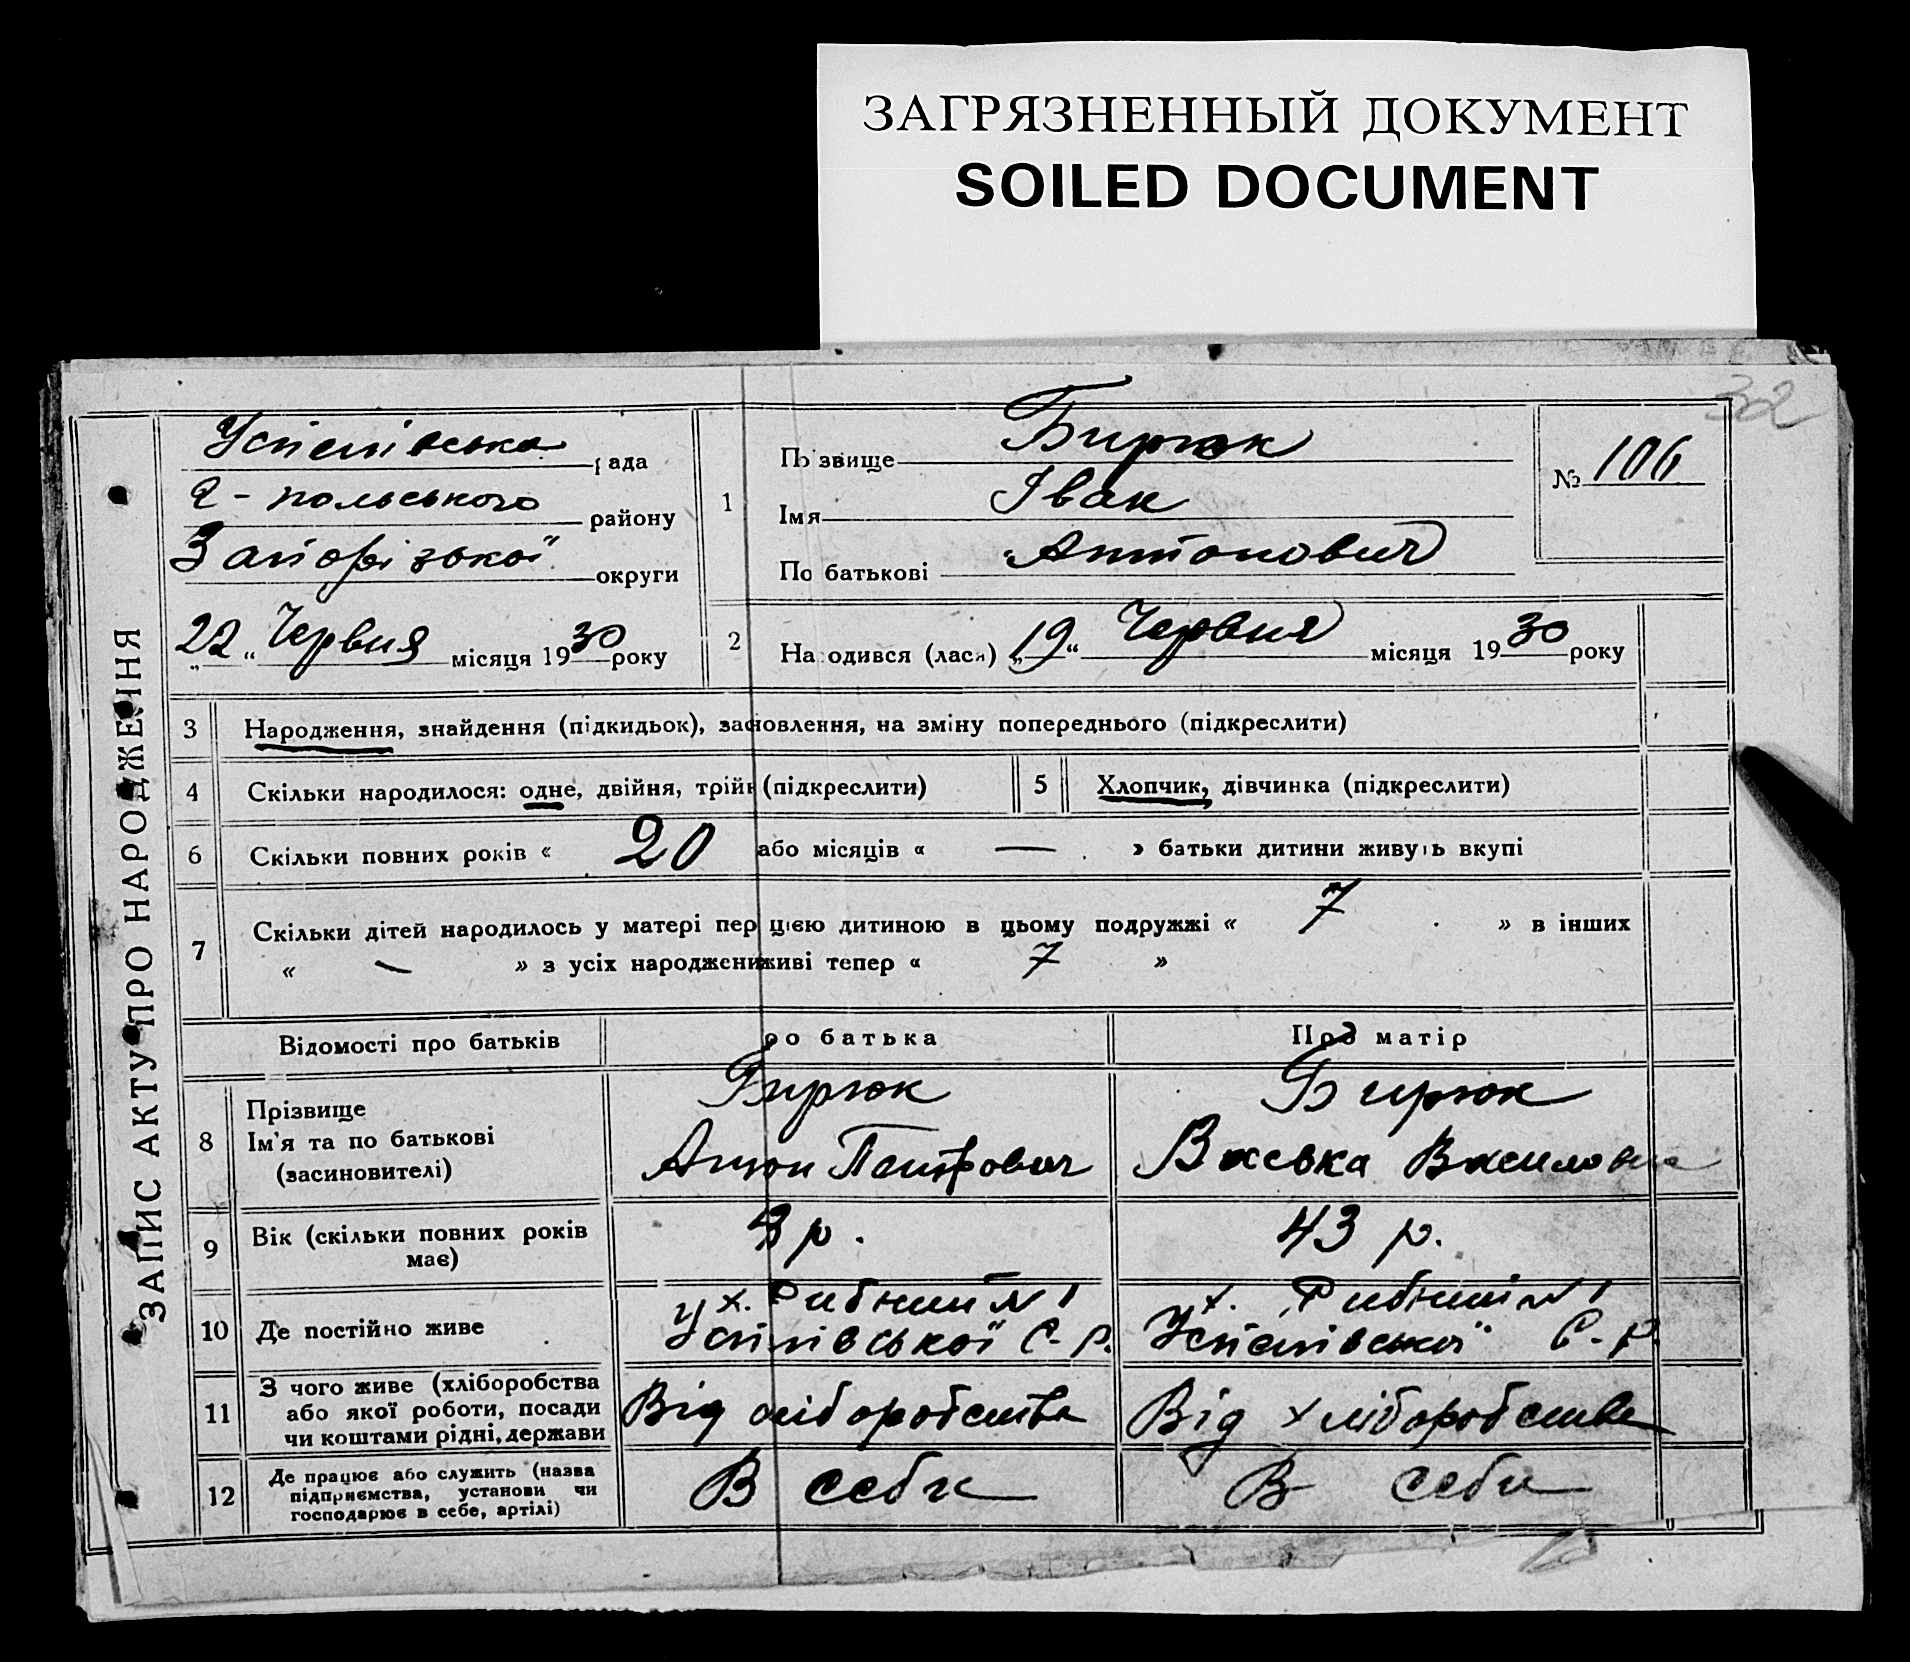 ЗАГРЯЗНЕННЫЙ ДОКУМЕНТ
SOILED DOCUMENT
32
ЗАПИС АКТУ ПРО НАРОДЖЕННЯ
Успенівська рада
Г-польського району
Запорізької округи
„22“ Червня місяця 1930 року
1
Прізвище Бирюк
Імя Іван
По батькові Антонович
№ 106
2
Народився (лася) „19“ Червня місяця 1930 року
3 Народження, знайдення (підкидьок), засновлення, на зміну попереднього (підкреслити)
4 Скільки народилося: одне, двійня, трійн (підкреслити)
5 Хлопчик, дівчинка (підкреслити)
6 Скільки повних років « 20 або місяців « — » батьки дитини живуть вкупі
7 Скільки дітей народилось у матері пер цією дитиною в цьому подружжі « 7 » в інших
« — » з усіх народжени живі тепер « 7 »
Відомості про батьків
ро батька
Про матір
8
Прізвище
Ім'я та по батькові
(засиновителі)
Бирюк
Антон Петрович
Бирюк
Васька Василовна
9
Вік (скільки повних років
має)
3 р.
43 р.
10 Де постійно живе
х. Рибний № 1
Успнівської С-р.
х. Рибний № 1
Успенівської С-р.
11
З чого живе (хліборобства
або якої роботи, посади
чи коштами рідні, держави
Від хліборобства
Від хліборобства
12
Де працює або служить (назва
підприємства, установи чи
господарює в себе, артілі)
В себе
В себе